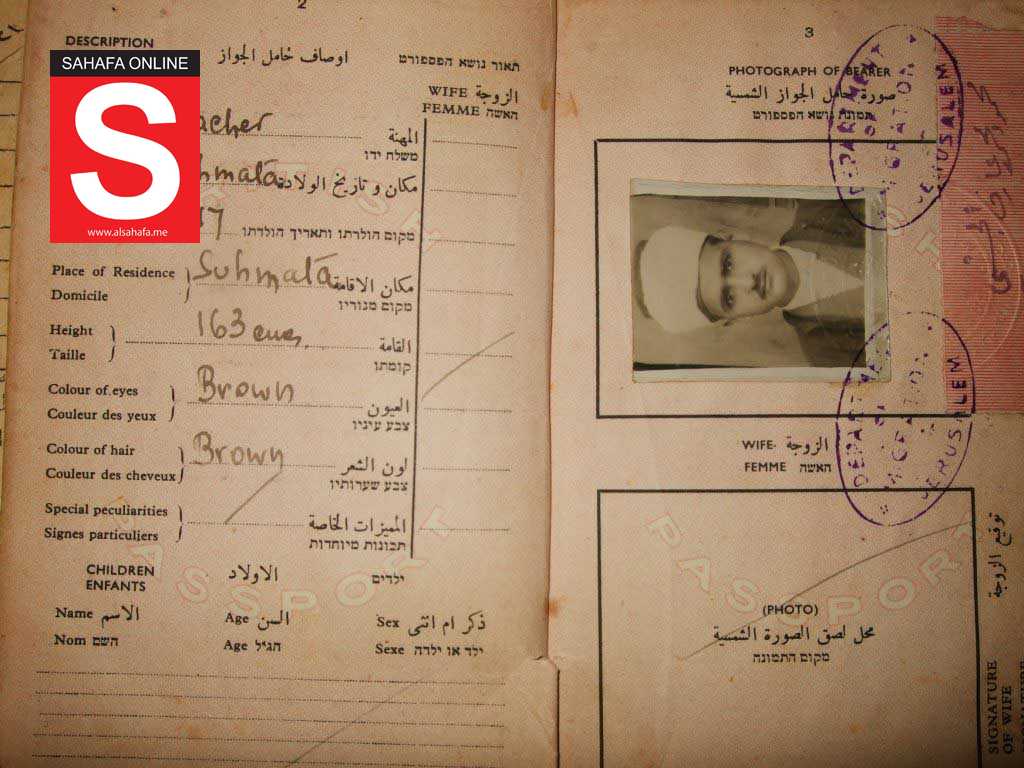 2
DESCRIPTION
اوصاف حامل الجواز
תאור נושא הפספורט
SAHAFA ONLINE
S
www.alsahafa.me
WIFE الزوجة
FEMME האשה
acher
المهنة
משלח ידו
hmata
مكان و تاريخ الولادة
מקום הולדתו ותאריך הולדתו
Place of Residence
Domicile
Suhmata
مكان الاقامة
מקום מגוריו
Height
Taille
163 cms.
القامة
קומתו
Colour of eyes
Couleur des yeux
Brown
العيون
צבע עיניו
Colour of hair
Couleur des cheveux
Brown
لون الشعر
צבע שערותיו
Special peculiarities
Signes particuliers
المميزات الخاصة
תכונות מיוחדות
PASSPORT
CHILDREN
ENFANTS
الاولاد
ילדים
Name الاسم
Nom השם
Age السن
Age הגיל
Sex ذكر ام انثى
Sexe ילד או ילדה
3
PHOTOGRAPH OF BEARER
صورة حامل الجواز الشمسية
תמונת נושא הפספורט
DEPARTMENT
OF
MIGRATION
JERUSALEM
WIFE- الزوجة
FEMME האשה
DEPARTME
OF
MIGRATION
JERUSALEM
PASSPORT
(PHOTO)
محل لصق الصورة الشمسية
מקום התמונה
توقيع الزوجة
SIGNATURE
OF WIFE